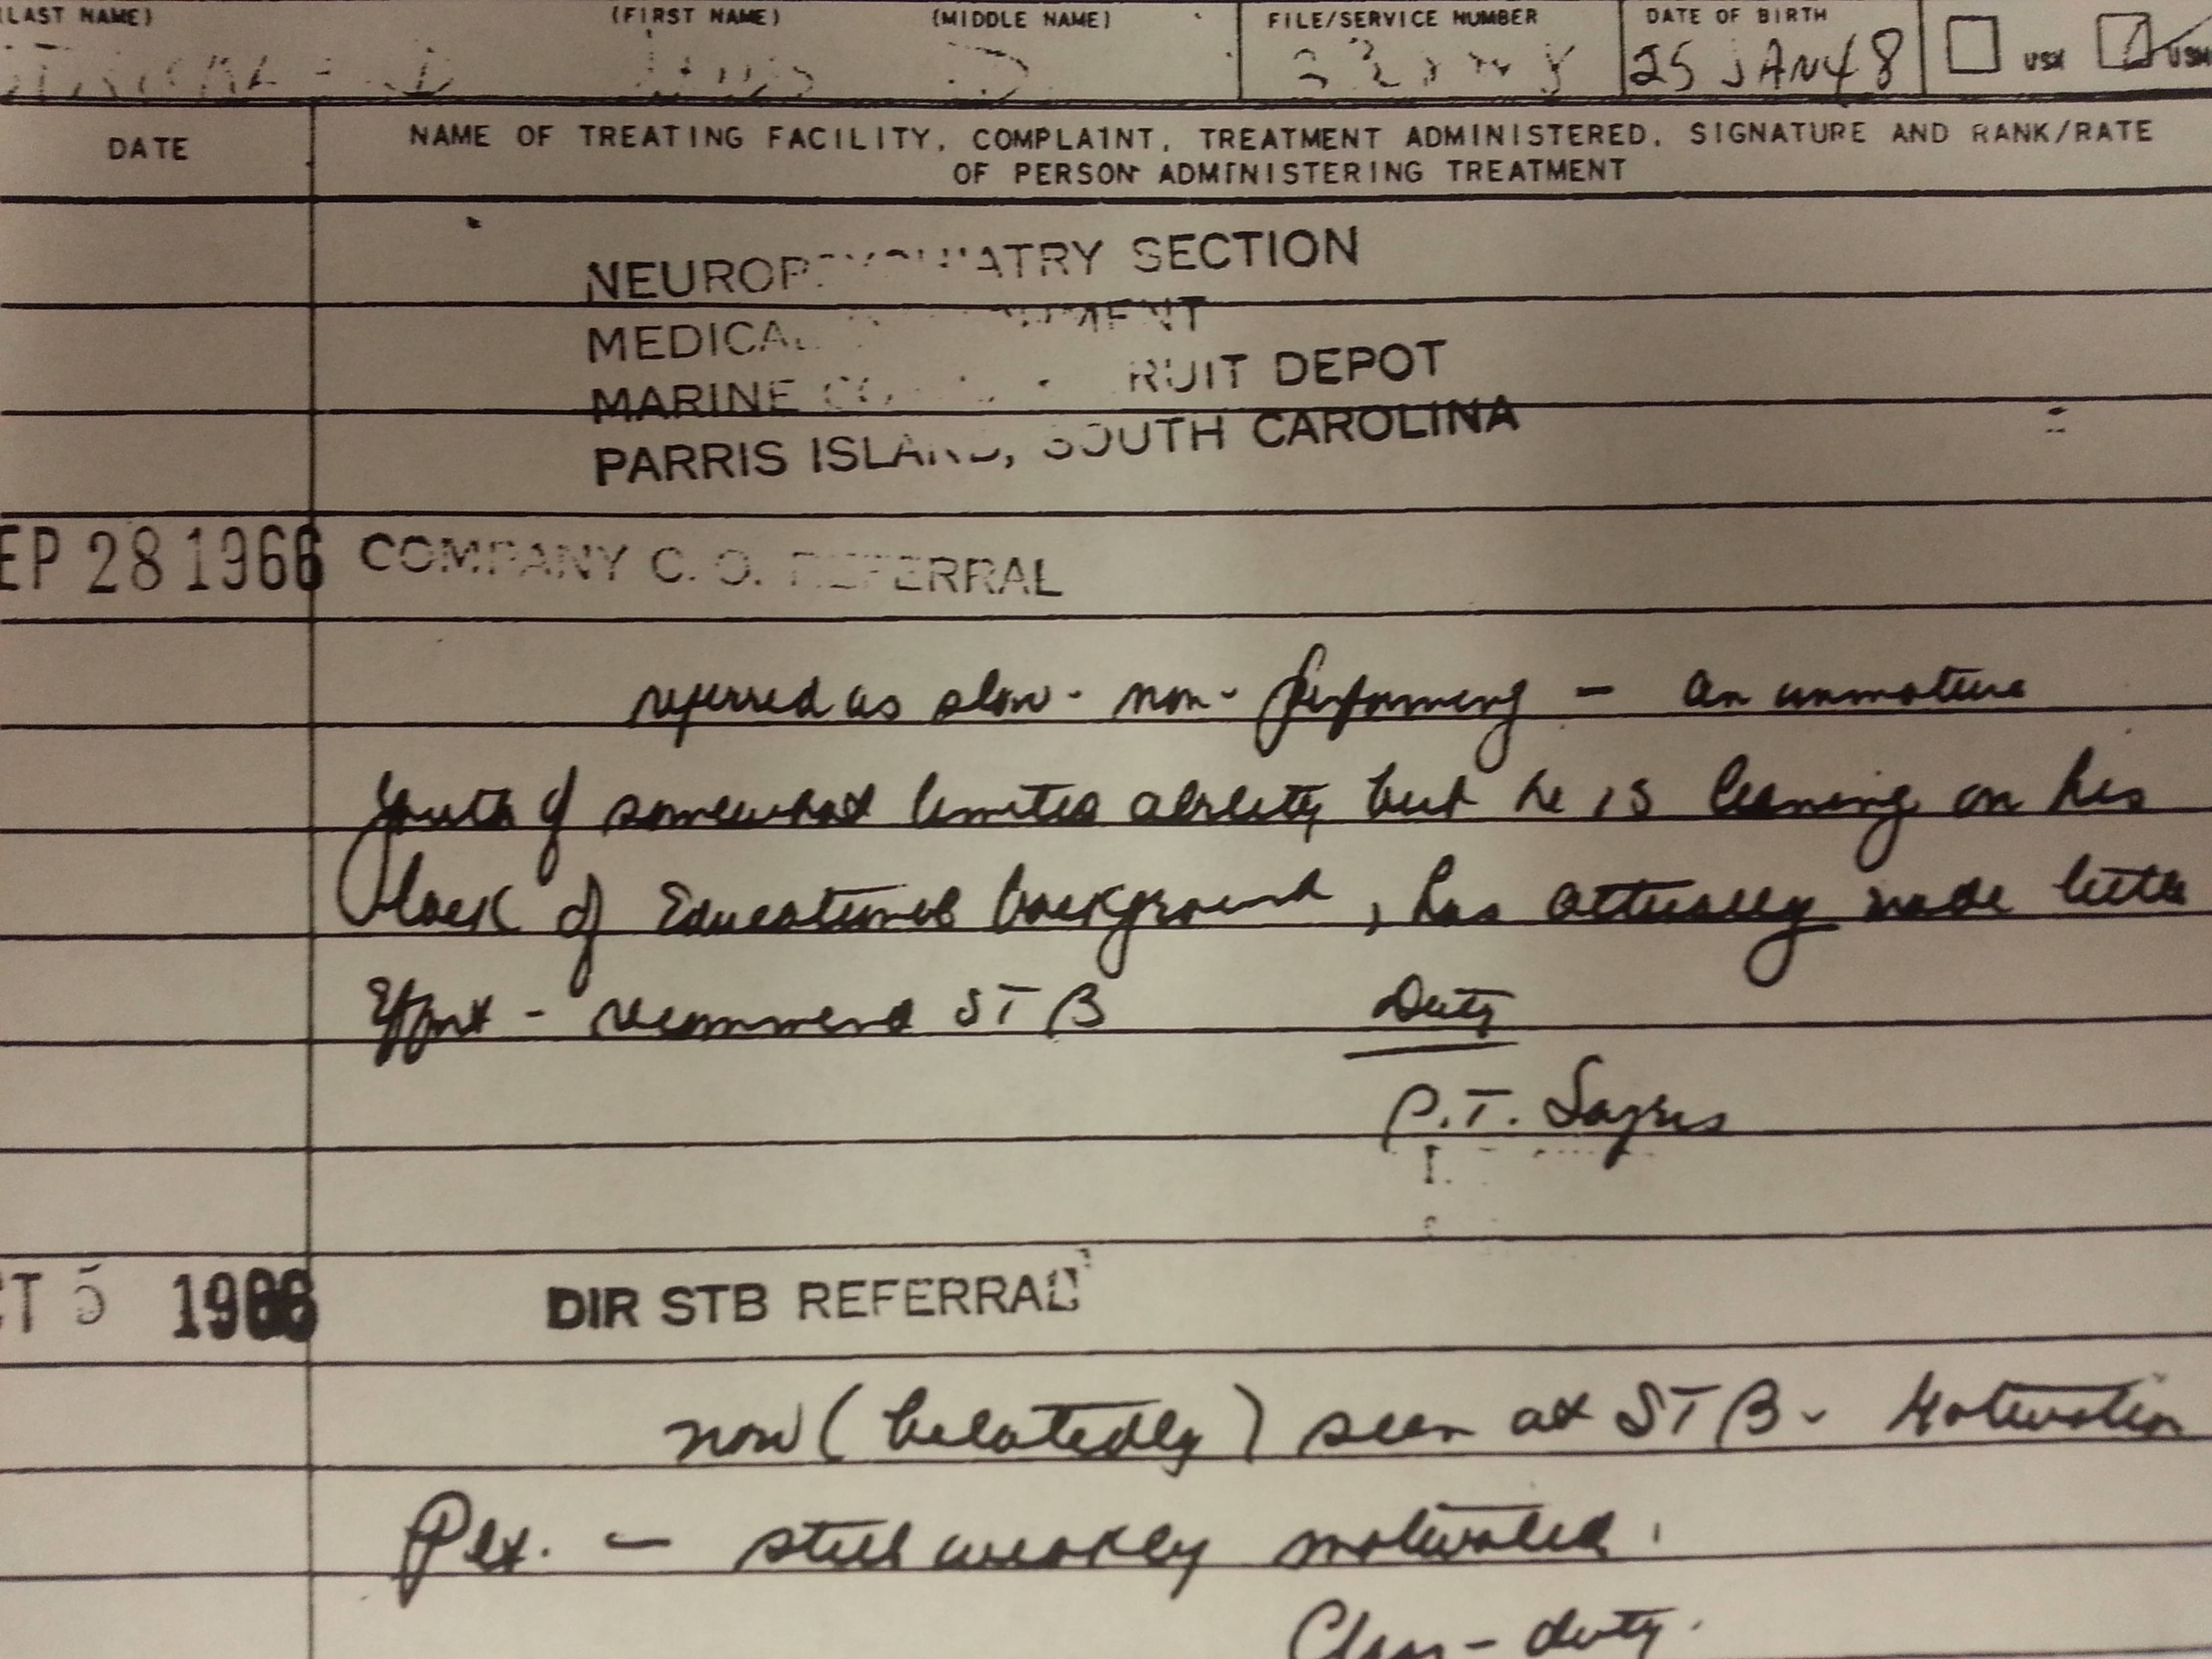 (LAST NAME) (FIRST NAME) (MIDDLE NAME) FILE/SERVICE NUMBER DATE OF BIRTH
D. 25 JAN 48 USN
DATE NAME OF TREATING FACILITY, COMPLAINT, TREATMENT ADMINISTERED, SIGNATURE AND RANK/RATE
OF PERSON ADMINISTERING TREATMENT
NEUROPSYCHIATRY SECTION
MEDICAL
MARINE RUIT DEPOT
PARRIS ISLAND, SOUTH CAROLINA
EP 28 1966 COMPANY C. O. REFERRAL
referred as slow - non - performing - an immature
youth of somewhat limited ability but he is leaning on his
lack of Educational background, has actually made little
Effort - recommend STB Duty
P.T.
CT 5 1966 DIR STB REFERRAL
now (belatedly) seen at STB - Motivation
Plt. - still weakly motivated.
duty.